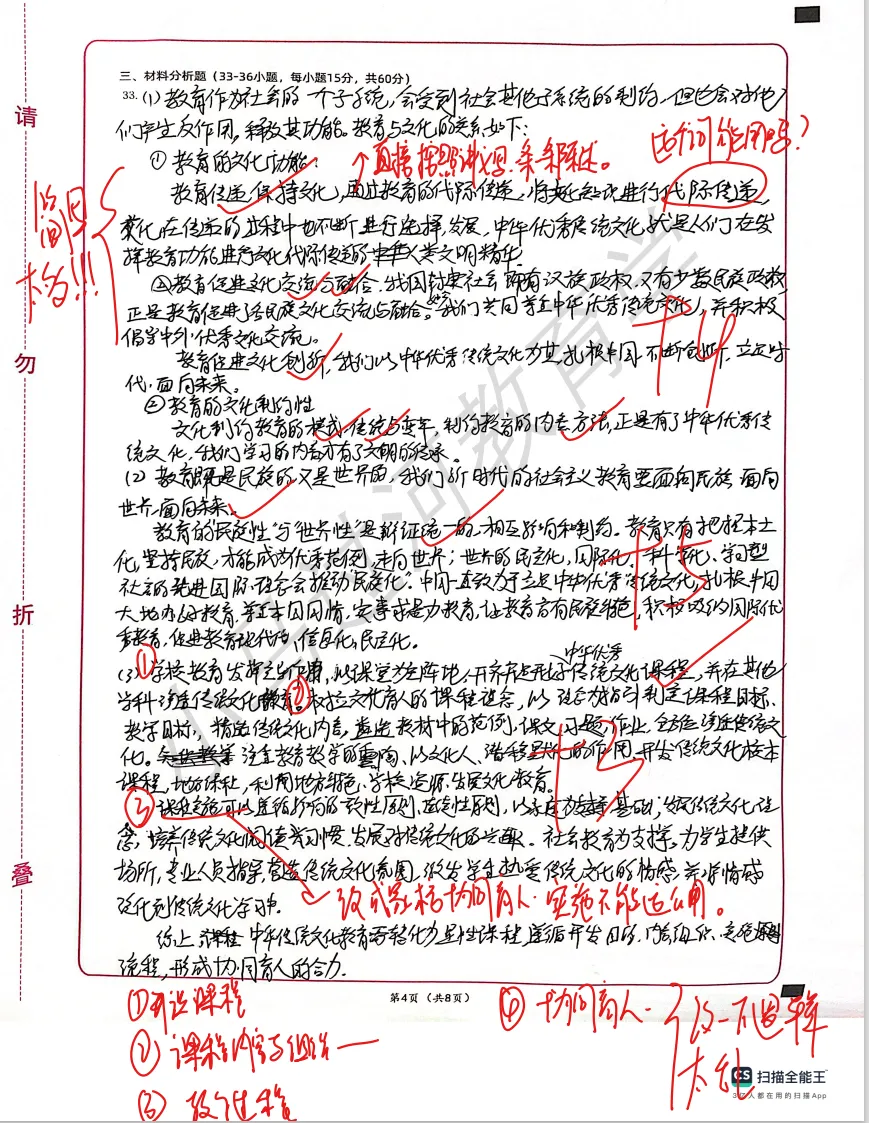 三、材料分析题（33-36小题，每小题15分，共60分）
33.(1)教育作为社会的一个子系统，会受到社会其他子系统的制约，但也会对他
们产生反作用，释放其功能。教育与文化的关系如下：
①教育的文化功能：
↑直接按照 条条陈述。
这个词能用吗？
教育传递、保持文化，通过教育的代际传递，将文化 进行代际传递
文化在传递的过程中也不断进行选择、发展，中华优秀传统文化就是人们在发
挥教育功能进行文化代际传递的中华人类文明精华。
教育促进文化交流与融合，我国封建社会即有汉族政权，又有少数民族政权
正是教育促进了各民族文化交流与融合。我们共同 中华优秀传统文化，并积极
倡导中外优秀文化交流。
教育促进文化创新，我们以中华优秀传统文化为基，扎根中国，不断创新，立足时
代，面向未来。
②教育的文化制约性
文化制约教育的模式、传统与变革，制约教育的内容、方法，正是有了中华优秀传
统文化，我们学习的内容才有了文明的传承。
+4
(2)教育既是民族的又是世界的，我们新时代的社会主义教育要面向民族、面向
世界、面向未来。
教育的“民族性”与“世界性”是辩证统一的，相互影响和制约。教育只有把根本土
化，坚持民族，才能成为优秀范例，走向世界；世界的民主化，国际化，科学化、学习型
社会的先进国际理念会推动“民族化”。中国一直致力于立足中华优秀传统文化，扎根中国
大地办好教育，立国情，实事求是办教育，让教育富有民族 ，积极吸收国际优
秀教育，促进教育现代化，信息化，民主化。
+5
(3)①学校教育发挥主 作用，以课堂为主阵地，开齐开足开好中华优秀传统文化课程，并在其他
学科渗透传统文化教育。②树立文化育人的课程理念，以 为指引制定课程目标、
教学目标，精选传统文化内容，选进教材中的范例、课文、习题、作业，全方位渗透传统文
化。 注重教育教学的熏陶，以文化人、潜移默化的作用，开发传统文化校本
课程，地方课程，利用地方特色、学校资源，发展文化教育。
+3
课程实施可以遵循 的 性原则， 性原则，以 为 基础，发展传统文化理
念，培养传统文化阅读学习惯，发展对传统文化的兴趣。社会教育为支撑，为学生提供
场所，专业人员指导，营造传统文化氛围，激发学生热爱传统文化的情感，并将情感
泛化到传统文化学习中。
改成家校协同育人，实施不能这么用。
综上，中华传统文化教育需转化为显性课程，遵循开发目的、内容组织、
流程，形成协同育人的合力。
第4页（共8页）
①开设课程
②课程内容与组织
③教学过程
④协同育人
改一下逻辑
太乱
太多!!!
请
勿
折
叠
小 河教育学
CS 扫描全能王
3亿人都在用的扫描App